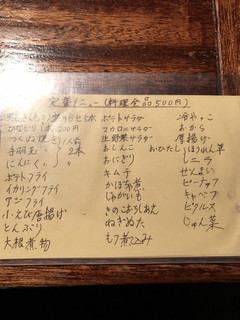 定番メニュー(料理全品500円)
盛り合せ5本
ひなどり 1本200円
つくね焼き 1人前
手羽先 〃 2本
にんにく 〃
ポテトフライ
イカリングフライ
アジフライ
小えび唐揚げ
とんぶり
大根煮物
ポテトサラダ
マカロニサラダ
生野菜サラダ
おしんこ
おにぎり
キムチ
かぼちゃ煮
じゃがいも
きのこおろしあえ
ねぎぬた
もつ煮込み
冷やっこ
おから
厚揚げ
おひたし ほうれん草
〃 ニラ
ぜんまい
ピーナッツ
キャベツ
ピクルス
じゅん菜